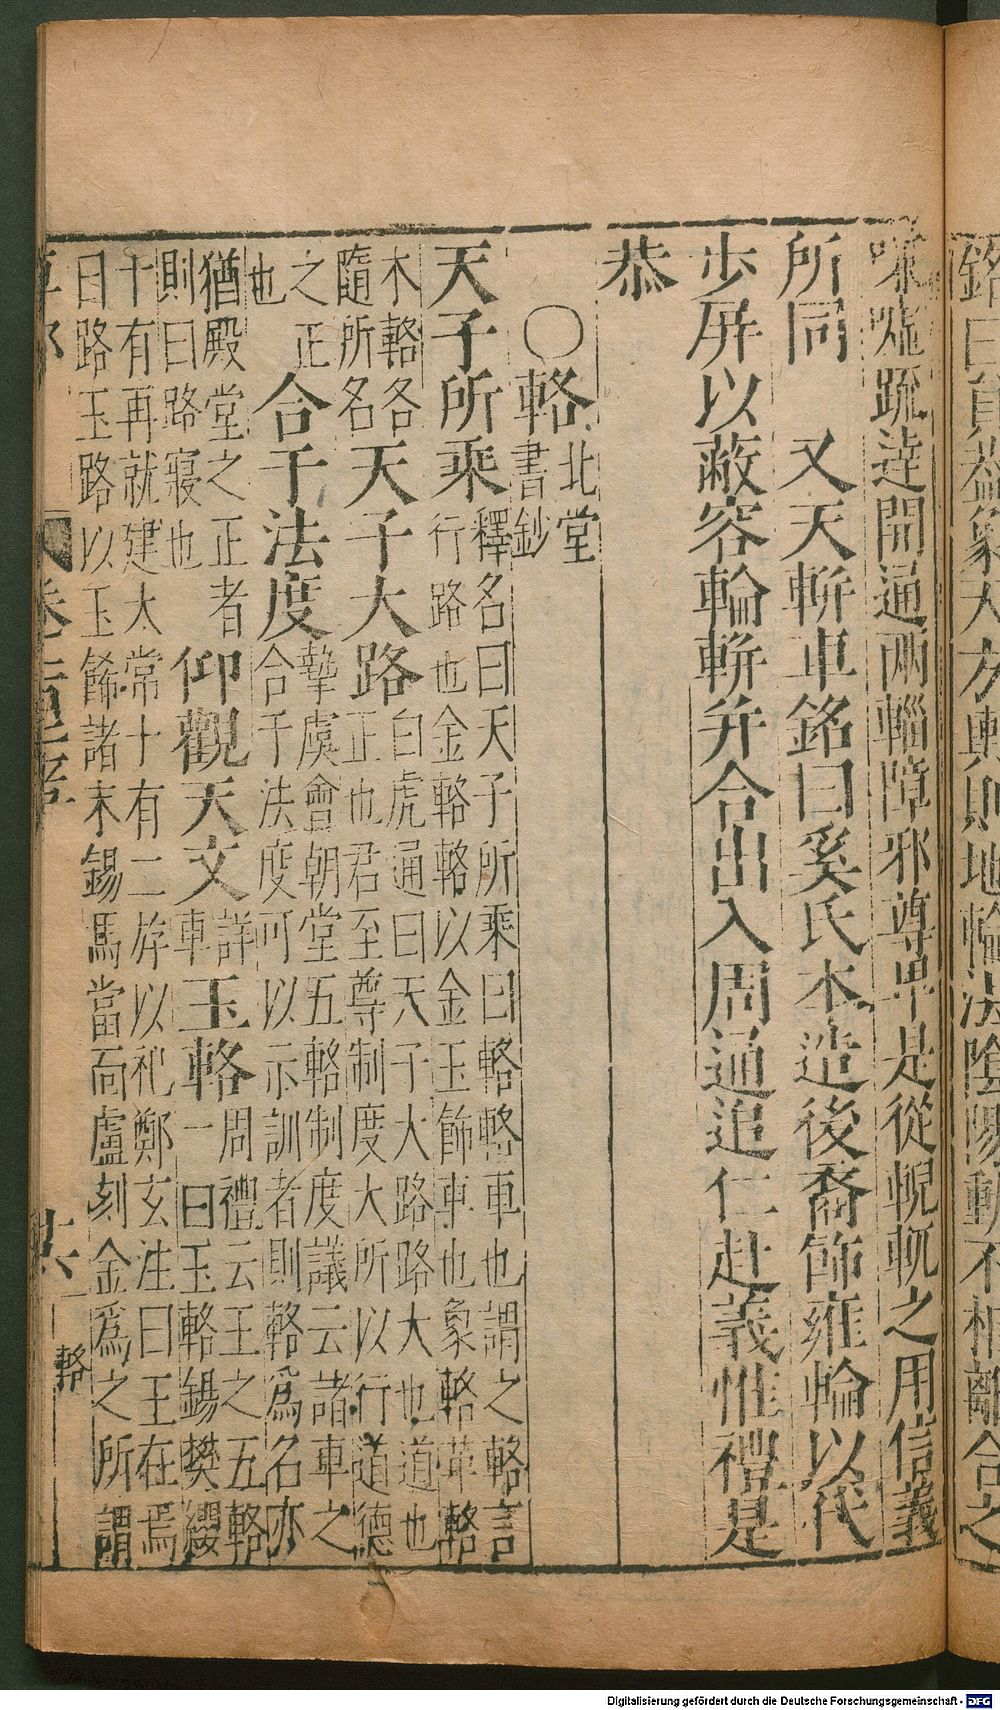 銘曰質盎象天方軫則地輪法陰陽動不相離合之
疏達開通兩轓障邪尊卑是從輗軏之用信義
所同　又天軿車銘曰奚氏本造後裔飾雍輪以代
步屏以蔽容輪軿并合出入周通追仁赴義惟禮是
恭
○輅北堂書鈔
天子所乘釋名曰天子所乘曰輅輅車也謂之輅言
行路也金輅輅以金玉飾車也象輅革輅
木輅各隨所名天子大路白虎通曰天子大路路大也道也
正也君至尊制度大所以行道德
之正也合于法度摯虞會朝堂五輅制度議云諸車之
合于法度可以示訓者則輅爲名亦
猶殿堂之正者則曰路寢也仰觀天文詳車玉輅周禮云王之五輅
一曰玉輅鍚樊纓
十有再就建太常十有二斿以祀鄭玄注曰王在焉
曰路玉路以玉餙諸末鍚馬當面盧刻金爲之所謂
車部
卷一百四十
十六
輅
Digitalisierung gefördert durch die Deutsche Forschungsgemeinschaft - DFG